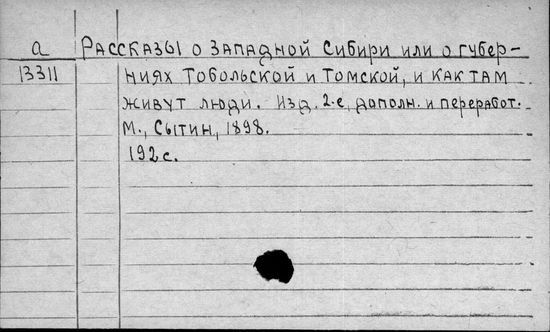 а РАССКАЗЫ О ЗАПАДНОЙ СИБИРИ ИЛИ О ГУБЕР-
13311 НИЯХ ТОБОЛЬСКОЙ И ТОМСКОЙ, И КАК ТАМ
ЖИВУТ ЛЮДИ. ИЗД. 2-е, ДОПОЛН. И ПЕРЕРАБОТ.
М., СЫТИН, 1898.
192 с.